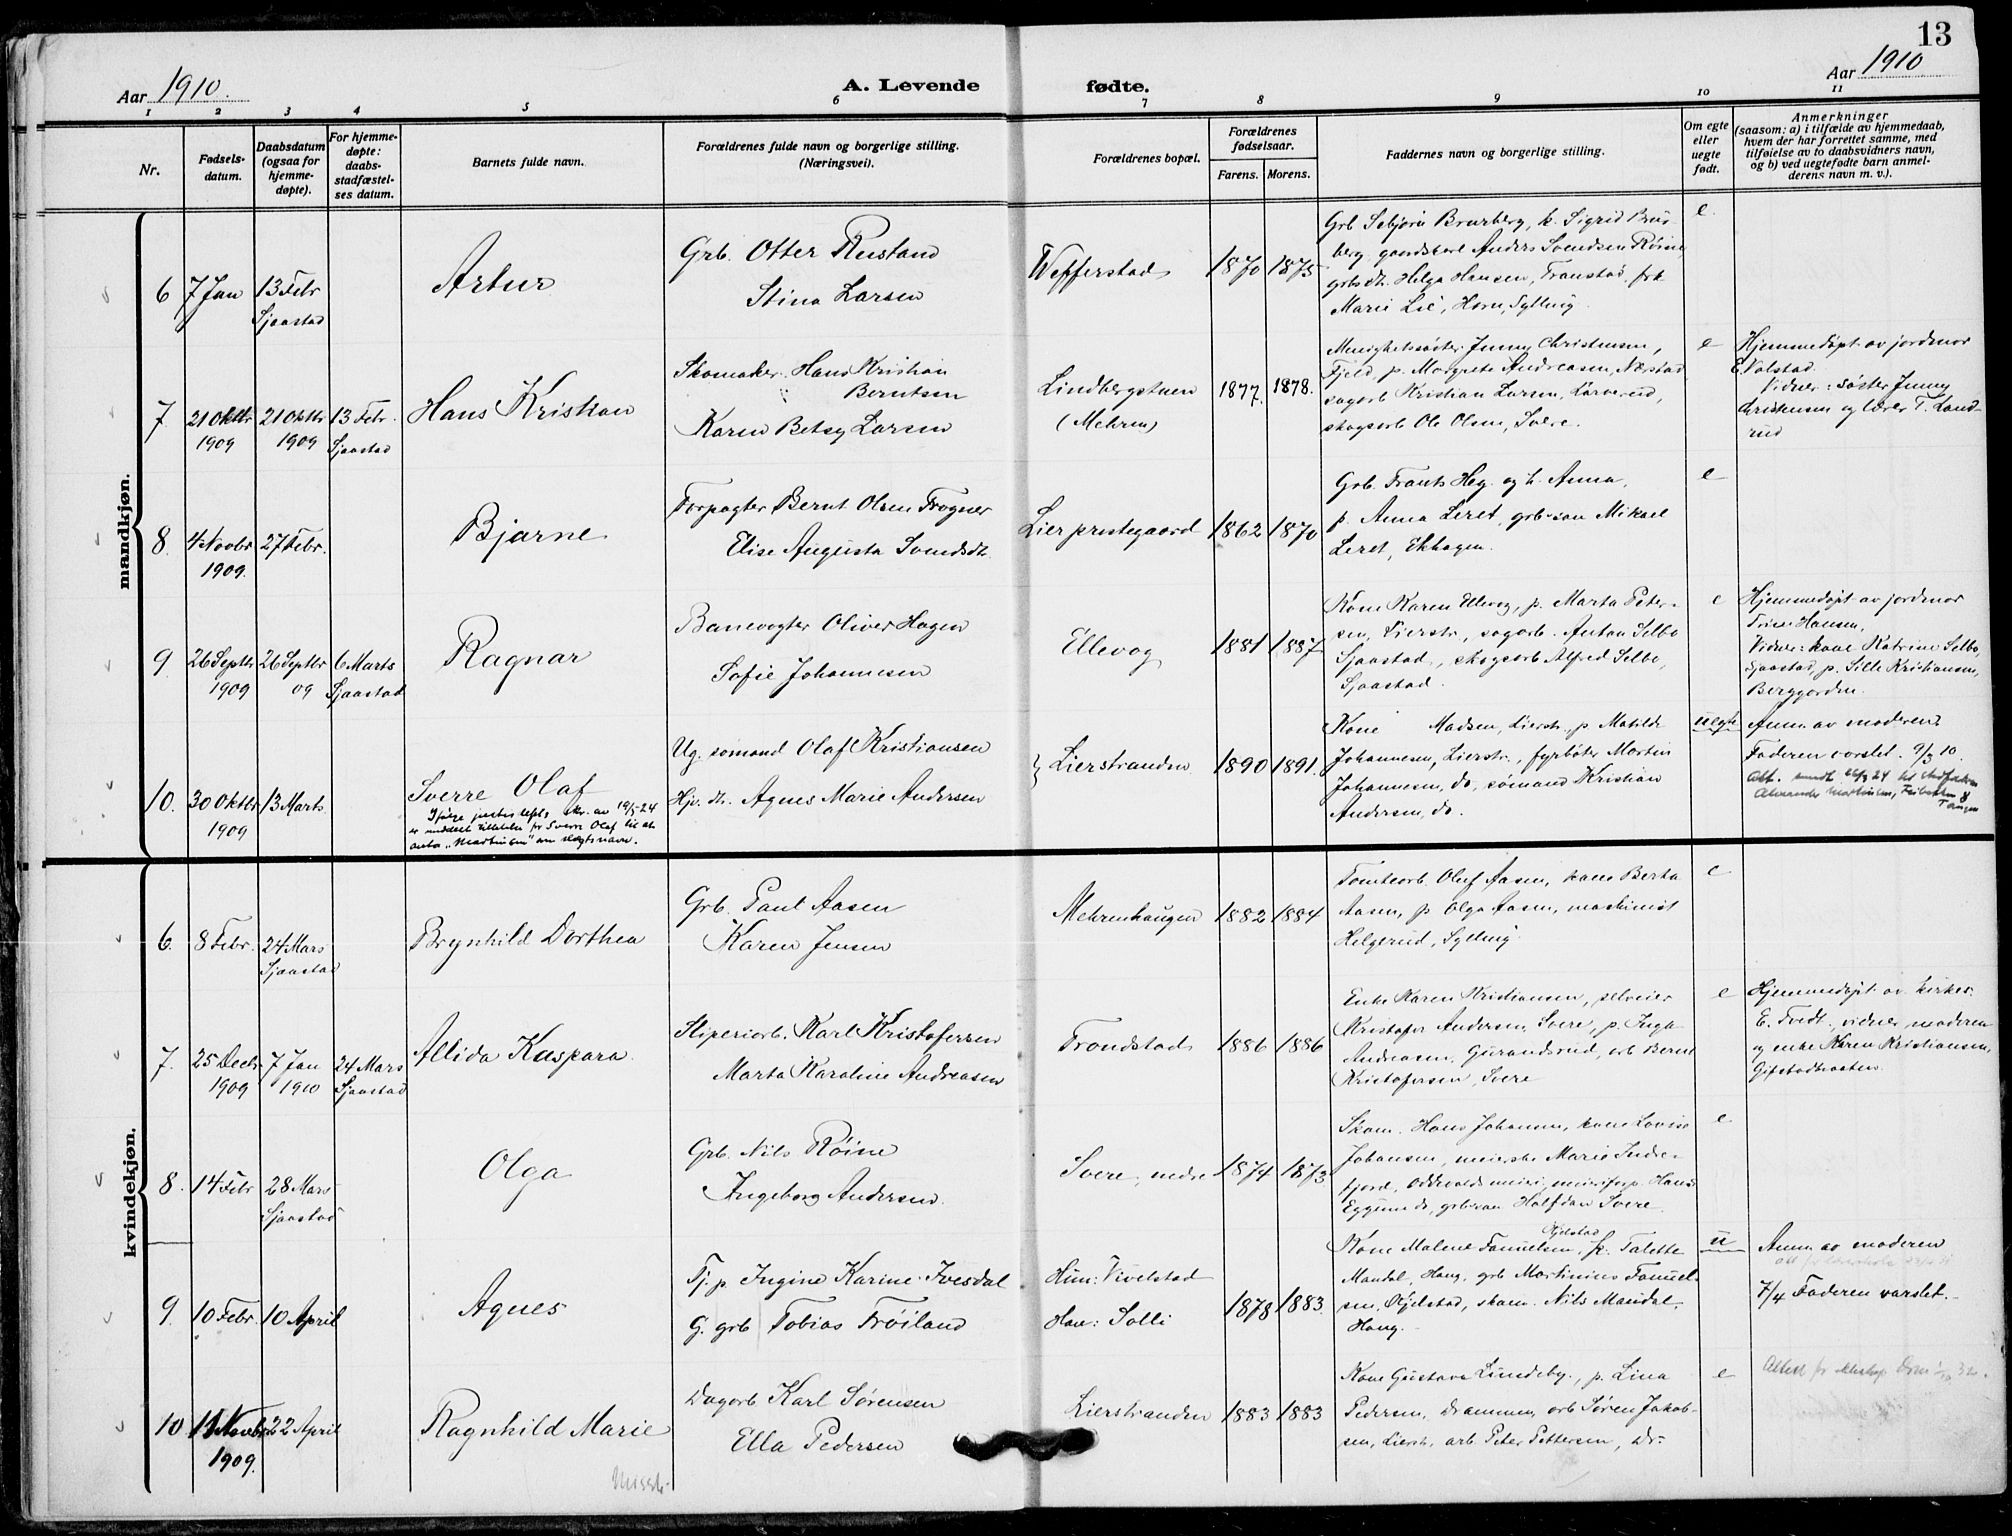 13
Aar 1910.
A. Levende fødte.
Aar 1910
1 2 3 4 5 6 7 8 9 10 11
Nr.
Fødsels-
datum.
Daabsdatum
(ogsaa for
hjemme-
døpte).
For hjemme-
døpte:
daabs-
stadfæstel-
ses datum.
Barnets fulde navn.
Forældrenes fulde navn og borgerlige stilling.
(Næringsvei).
Forældrenes bopæl.
Forældrenes
fødselsaar.
Farens. Morens.
Faddernes navn og borgerlige stilling.
Om egte
eller
uegte
født.
Anmerkninger
(saasom: a) i tilfælde av hjemmedaab,
hvem der har forrettet samme, med
tilføielse av to daabsvidners navn,
og b) ved uegtefødte barn anmel-
derens navn m. v.).
mandkjøn.
6 7 Jan 13 Febr
Sjaastad
Artur
Grb. Otter Rustand
Stina Larsen
Wefferstad
1870 1875
Grb Sebjørn Brurberg, k. Sigrid Brur-
berg, gaardskarl Anders Svendsen Røine,
grbsdt. Helga Hansen, Transtad, frk
Marie Lie, Horn, Sylling.
e.
7 21 Oktbr 21 Oktbr 13 Febr.
1909 1909 Sjaastad
Hans Kristian
Skomaker Hans Kristian
Berntsen
Karen Betsy Larsen
Lindbergstuen
(Mehren)
1877. 1878.
Menighetssøster Jenny Christensen,
Fjeld, p. Margrete Andreasen, Næstad
sagarb Kristian Larsen, Lørverud,
skogsarb Ole Olsen, Svere.
e
Hjemmedøpt av jordmor
E. Valstad.
Vidner: søster Jenny
Christensen og lærer T. Land-
rud
8. 4 Novbr 27 Febr.
1909.
Bjarne
Forpagter Bernt Olsen Frogner
Elise Augusta Svendsdt.
Lier prestegaard
1862 1870
Grb. Frants Heg og h. Anna,
p. Anna Leret, grb-søn Mikael
Leret, Ekhagen.
e
9. 26 Septbr 26 Septbr 6 Marts
1909 09 Sjaastad
Ragnar
Banevogter Oliver Hagen
Sofie Johannesen
Ellevog
1881 1887
Kone Karen Ellevog, p. Marta Peter-
sen, Lierstr., sagarb. Anton Selbo
Sjaastad, skogsarb Alfred Selbo,
Sjaastad.
e
Hjemmedøpt av jordmor
Trine Hansen,
Vidner: kone Katrine Selbo,
Sjaastad, p. Sille Kristiansen,
Berggarden.
10. 30 Oktbr 13 Marts.
1909
Sverre Olaf
Ifølge justisdepts. skr. av 19/5-24
er meddelt tilladelse for Sverre Olaf til at
anta "Martinsen" som slegtsnavn.
Ug. sømand Olaf Kristiansen
Hjv. dt. Agnes Marie Andersen
Lierstranden
1890 1891.
Kone Madsen, Lierstr., p. Matilde
Johannesen, Lierstr., fyrbøter Martin
Johannesen, do, sømand Kristian
Andersen, do.
uegte
Anm. av moderen.
Faderen varslet. 9/3 10.
Att. sendt
Alexander Martinsen,
kvindekjøn.
6. 8 Febr. 24 Mars
Sjaastad
Brynhild Dorthea
Grb. Paul Aasen
Karen Jensen
Mehrenhaugen
1882 1884
Tomtearb. Oluf Aasen, kone Berta
Aasen, p Olga Aasen, maskinist
Helgerud, Sylling.
e
7. 25 Decbr. 7 Jan 24 Mars
1909 1910 Sjaastad
Allida Kaspara.
Sliperiarb. Karl Kristofersen
Marta Karoline Andreasen
Trondstad
1886 1886
Enke Karen Kristiansen, selveier
Kristofer Andersen, Svere, p. Inga
Andreasen, Gurandsrud, arb Bernt
Kristofersen, Svere
e
Hjemmedøpt av kirkes.
E. Tvedt, vidner, moderen
og enke Karen Kristiansen,
8. 14 Febr 28 Mars
Sjaastad
Olga
Grb. Nils Røine
Ingeborg Andersen.
Svere, nedre
1874 1873.
Skom. Hans Johansen, kone Lovise
Johansen, meierske Marie Indre-
fjord, Oddevalds meieri, meieriforp. Hans
Eggum do, grbsøn Halfdan Svere.
e
9. 10 Febr. 10 April
Agnes
Tj. p Ingine Karine Ivesdal
G. grb Tobias Frøiland
Hun: Vivelstad
Han: Solli
1878 1883.
Gjelstad
Kone Malene Samuelsen, p. Talette
Mandal, Haug, grb Martinius Samuel-
sen, Gjelstad, skom. Nils Mandal,
Haug.
u
Anm. av moderen
7/4 Faderen varslet.
10 11 Novbr 22 April
1909.
Ragnhild Marie
Dagarb Karl Sørensen
Ella Pedersen
Lierstranden
1883 1883
Kone Gustava Lundeby, p. Lina
Pedersen, Drammen, arb Søren Jakob-
sen, Lierstr., arb. Peter Pettersen, Dr.
e